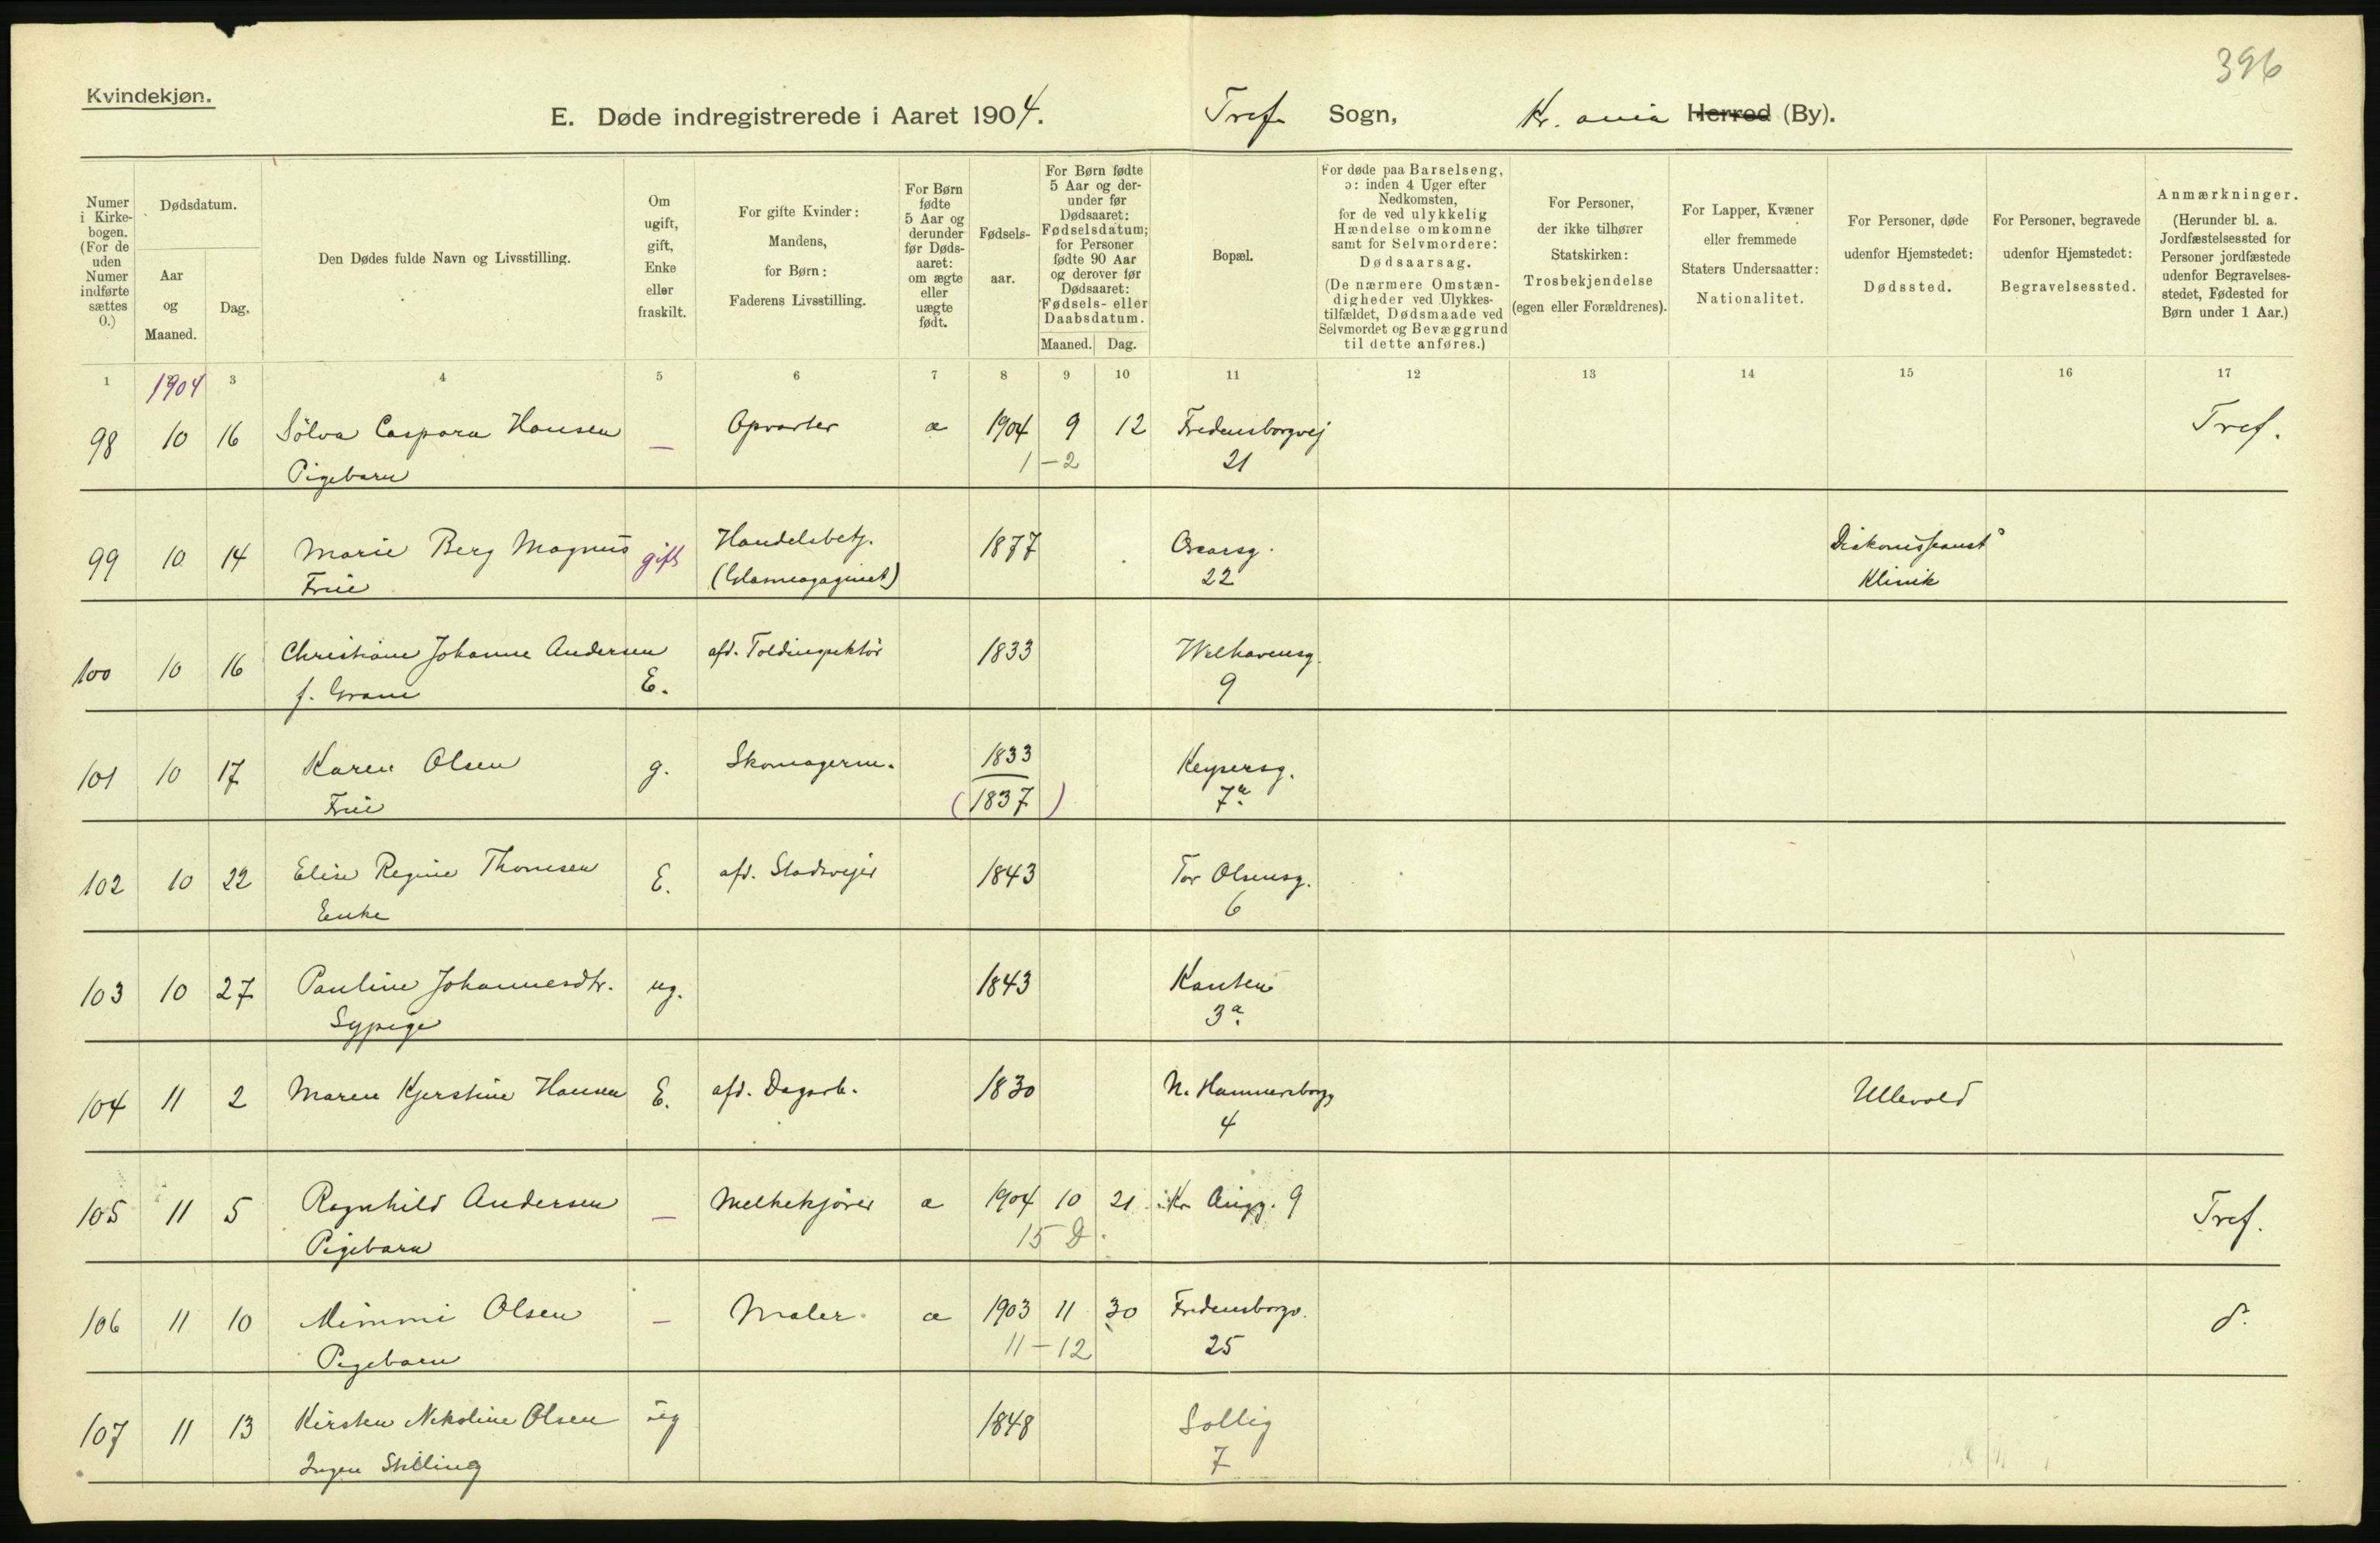 396
Kvindekjøn.
E. Døde indregistrerede i Aaret 1904. Tref. Sogn, Kr. ania Herred (By).
Numer i Kirkebogen. (For de uden Numer indførte sættes 0.)
Dødsdatum.
Aar og Maaned.
Dag.
Den Dødes fulde Navn og Livsstilling.
Om ugift, gift, Enke eller fraskilt.
For gifte Kvinder: Mandens, for Børn: Faderens Livsstilling.
For Børn fødte 5 Aar og derunder før Dødsaaret: om ægte eller uægte født.
Fødselsaar.
For Børn fødte 5 Aar og derunder før Dødsaaret: Fødselsdatum; for Personer fødte 90 Aar og derover før Dødsaaret: Fødsels- eller Daabsdatum.
Maaned. Dag.
Bopæl.
For døde paa Barselseng, ɔ: inden 4 Uger efter Nedkomsten, for de ved ulykkelig Hændelse omkomne samt for Selvmordere: Dødsaarsag. (De nærmere Omstændigheder ved Ulykkestilfældet, Dødsmaade ved Selvmordet og Bevæggrund til dette anføres.)
For Personer, der ikke tilhører Statskirken: Trosbekjendelse (egen eller Forældrenes).
For Lapper, Kvæner eller fremmede Staters Undersaatter: Nationalitet.
For Personer, døde udenfor Hjemstedet: Dødssted.
For Personer, begravede udenfor Hjemstedet: Begravelsessted.
Anmærkninger. (Herunder bl. a. Jordfæstelsessted for Personer jordfæstede udenfor Begravelsesstedet, Fødested for Børn under 1 Aar.)
1 2 3 4 5 6 7 8 9 10 11 12 13 14 15 16 17
1904
98 10 16 Sølva Caspara Hansen — Opvarter æ 1904 9 12 Fredensborgvej Tref.
Pigebarn 1 – 2 21
99 10 14 Marie Berg Magnus gift Handelsbetj. 1877 Oscarsg. Diakonissanst
Frue (Glasmagasinet) 22 Klinik
100 10 16 Christiane Johanne Andersen E. afd. Toldinspektør 1833 Welhavensg.
f. Gram 9
101 10 17 Karen Olsen g. Skomagerm. 1833 Keysersg.
Frue (1837) 7a
102 10 22 Elise Regine Thomsen E. afd. Stadsvejer 1843 Tor Olsensg.
Enke 6
103 10 27 Pauline Johannesdtr. ug. 1843 Kanten
Sypige 3a
104 11 2 Maren Kjerstine Hansen E. afd. Dagarb. 1830 N. Hammersborg Ullevold
4
105 11 5 Ragnhild Andersen — Melkekjører æ 1904 10 21 Kr. Augg. 9 Tref.
Pigebarn 15 D.
106 11 10 Mimmi Olsen — Maler æ 1903 11 30 Fredensborgv. d.
Pigebarn 11 – 12 25
107 11 13 Kirsten Nikoline Olsen ug 1848 Sollig
Ingen Stilling 7